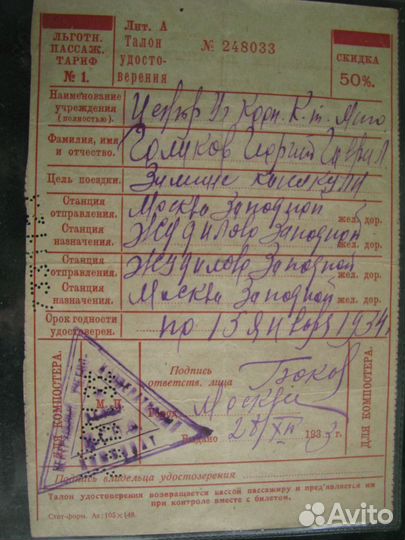 ЛЬГОТН.
ПАССАЖ.
ТАРИФ
№ 1.
Лит. А
Талон
удосто-
верения
№ 248033
СКИДКА
50%.
Наименование
учреждения
(полностью).
Фамилия, имя
и отчество.
Голиков Георгий
Цель поездки.
Зимние каникулы
Станция
отправления.
Москва Западной
жел. дор.
Станция
назначения.
Жудилово Западной
Станция
отправления.
Жудилово Западной
Станция
назначения.
Москва Западной
жел. дор.
Срок годности
удостоверен.
по 15 января 1934 г.
ДЛЯ КОМПОСТЕРА.
Подпись
ответств. лица
М. П.
Москва
Выдано 28/XII 1933 г.
ДЛЯ КОМПОСТЕРА.
Подпись владельца удостоверения
Талон удостоверения возвращается кассой пассажиру и предъявляется им
при контроле вместе с билетом.
Стат-форм. А6: 105×148.
Avito